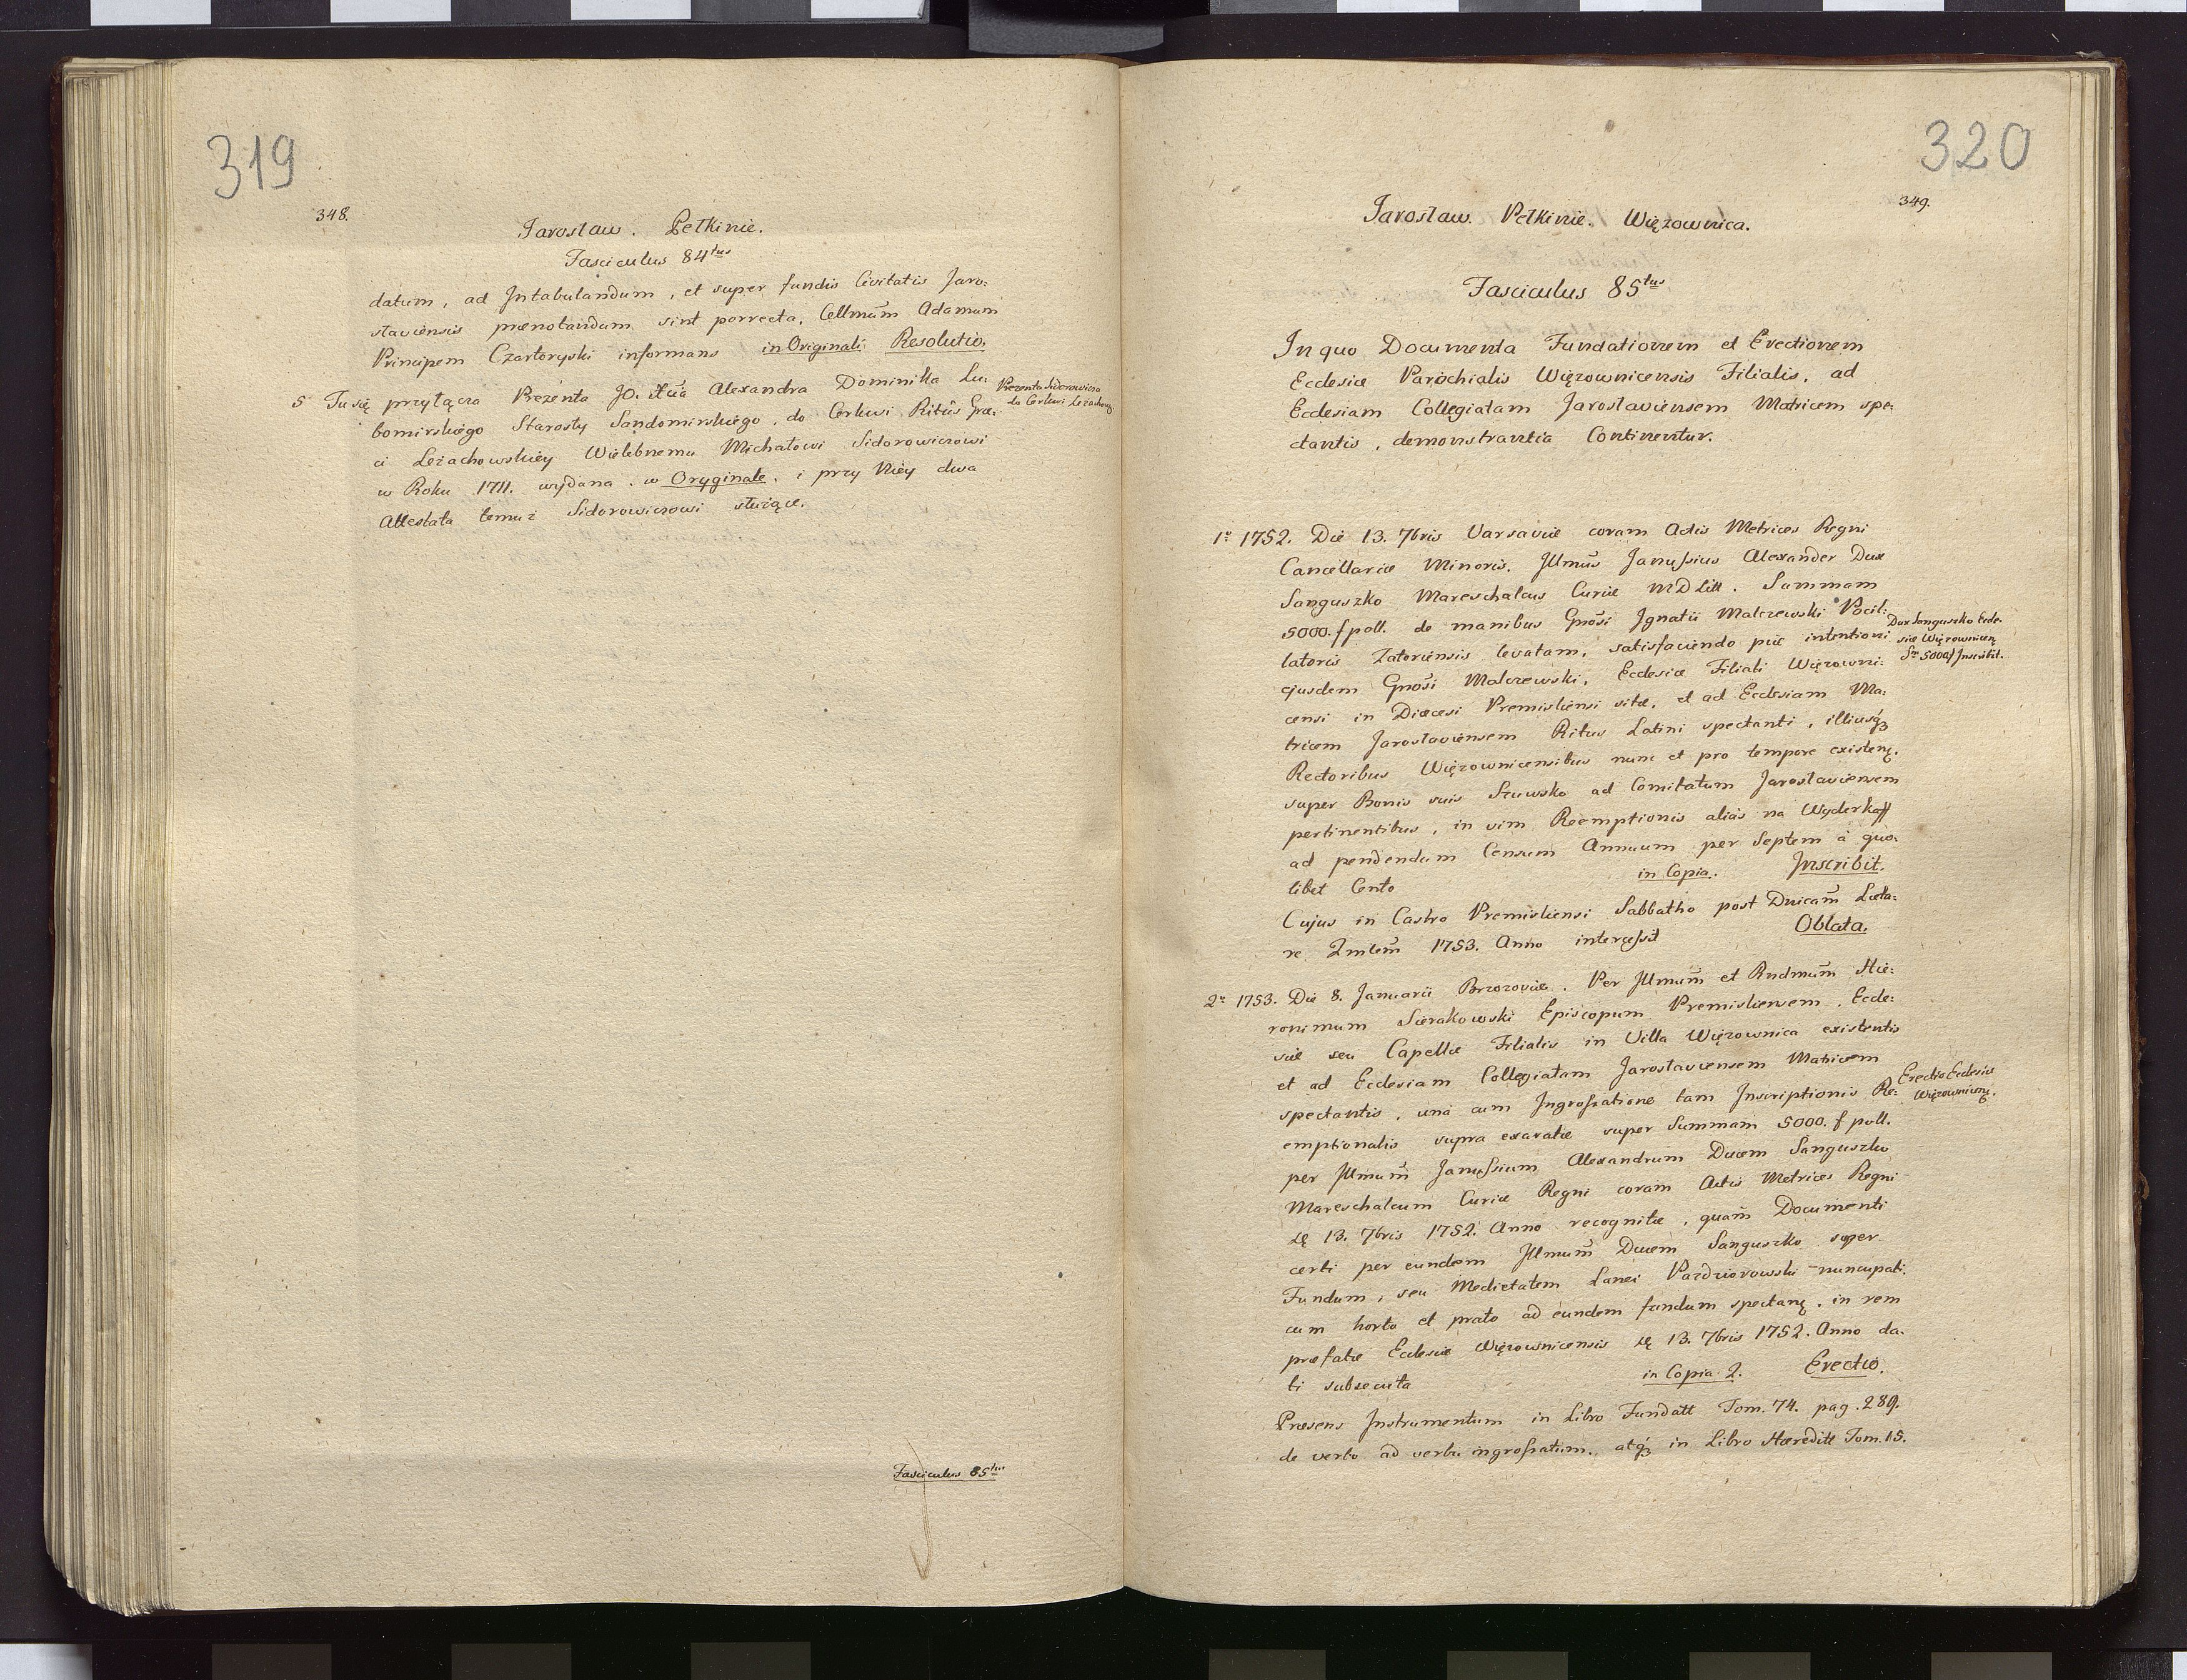 319
348.
Jarosław. Pełkinie.
Fasciculus 84tus
datum, ad Intabulandum, et super fundis Civitatis Jaro:
slaviensis prænotandum sint porrecta, Cellmūm Adamum
Principem Czartoryski informans in Originali Resolutio.
5 Tu się przyłącza Prezenta JO. Xcia Alexandra Dominika Lu:
bomirskiego Starosty Sandomirskiego, do Cerkwi Ritûs Græ:
ci Leżachowskiey Wielebnemu Michałowi Sidorowiczowi
w Roku 1711. wydana, w Oryginale, i przy Niey dwa
Attestata temuż Sidorowiczowi służące.
Prezenta Sidorowicza
do Cerkwi Leżachow.
Fasciculus 85tus
320
349.
Jarosław. Pełkinie. Więzownica.
Fasciculus 85tus
In quo Documenta Fundationem et Erectionem
Ecclesiæ Parochialis Więzownicensis Filialis, ad
Ecclesiam Collegiatam Jaroslaviensem Matricem spe:
ctantis, demonstrantia Continentur.
1o 1752. Die 13. 7bris Varsaviæ coram Actis Metrices Regni
Cancellariæ Minoris, Illmūs Janussius Alexander Dux
Sanguszko Mareschalcus Curiæ MDLitt. Summam
5000. f poll. de manibus Gnōsi Ignatii Malczewski Pocil:
latoris Zatoriensis levatam, satisfaciendo piæ intentioni
ejusdem Gnōsi Malczewski, Ecclesiæ Filiali Więzowni:
censi in Diæcesi Premisliensi sitæ, et ad Ecclesiam Ma:
tricem Jaroslaviensem Ritus Latini spectanti, illiusqȝ
Rectoribus Więzownicensibus nunc et pro tempore existenţ.
super Bonis suis Szuwsko ad Comitatum Jaroslaviensem
pertinentibus, in vim Reemptionis aliàs na Wyderkaff
ad pendendum Censum Annuum per Septem à quo:
libet Cento in Copia. Inscribit.
Cujus in Castro Premisliensi Sabbatho post Dnicam̄ Læta:
re Oblata.
1753. Anno intercessit
Dux Sanguszko Eccle:
siæ Więzownicen
Sm 5000 f Inscribit.
2o 1753. Die 8. Januarii Brzozoviæ. Per Illmum̄ et Rndmum̄ Hie:
ronimum Sierakowski Episcopum Premisliensem, Eccle:
siæ seu Capellæ Filialis in Villa Więzownica existentis
et ad Ecclesiam Collegiatam Jaroslaviensem Matricem
spectantis, unà cum Ingrossatione tam Inscriptionis Re:
emptionalis supra exaratæ super Summam 5000. f poll.
per Illmum̄ Janussium Alexandrum Ducem Sanguszko
Mareschalcum Curiæ Regni coram Actis Metrices Regni
13. 7bris 1752. Anno recognitæ, quam̄ Documenti
certi per eundem Illmum̄ Ducem Sanguszko super
Fundum, seu Medietatem Lanei Pazdziorowski nuncupati
cum horto et prato ad eundem fundum spectanţ. in rem
præfatæ Ecclesiæ Więzownicensis 13. 7bris 1752. Anno da:
ti subsecuta in Copia 2. Erectio.
Erectio Ecclesiæ
Więzownicenţ.
Præsens Instrumentum in Libro Fundatt Tom. 74. pag. 289.
de verbo ad verbu ingrossatum, atqȝ in Libro Hæreditt Tom. 15.